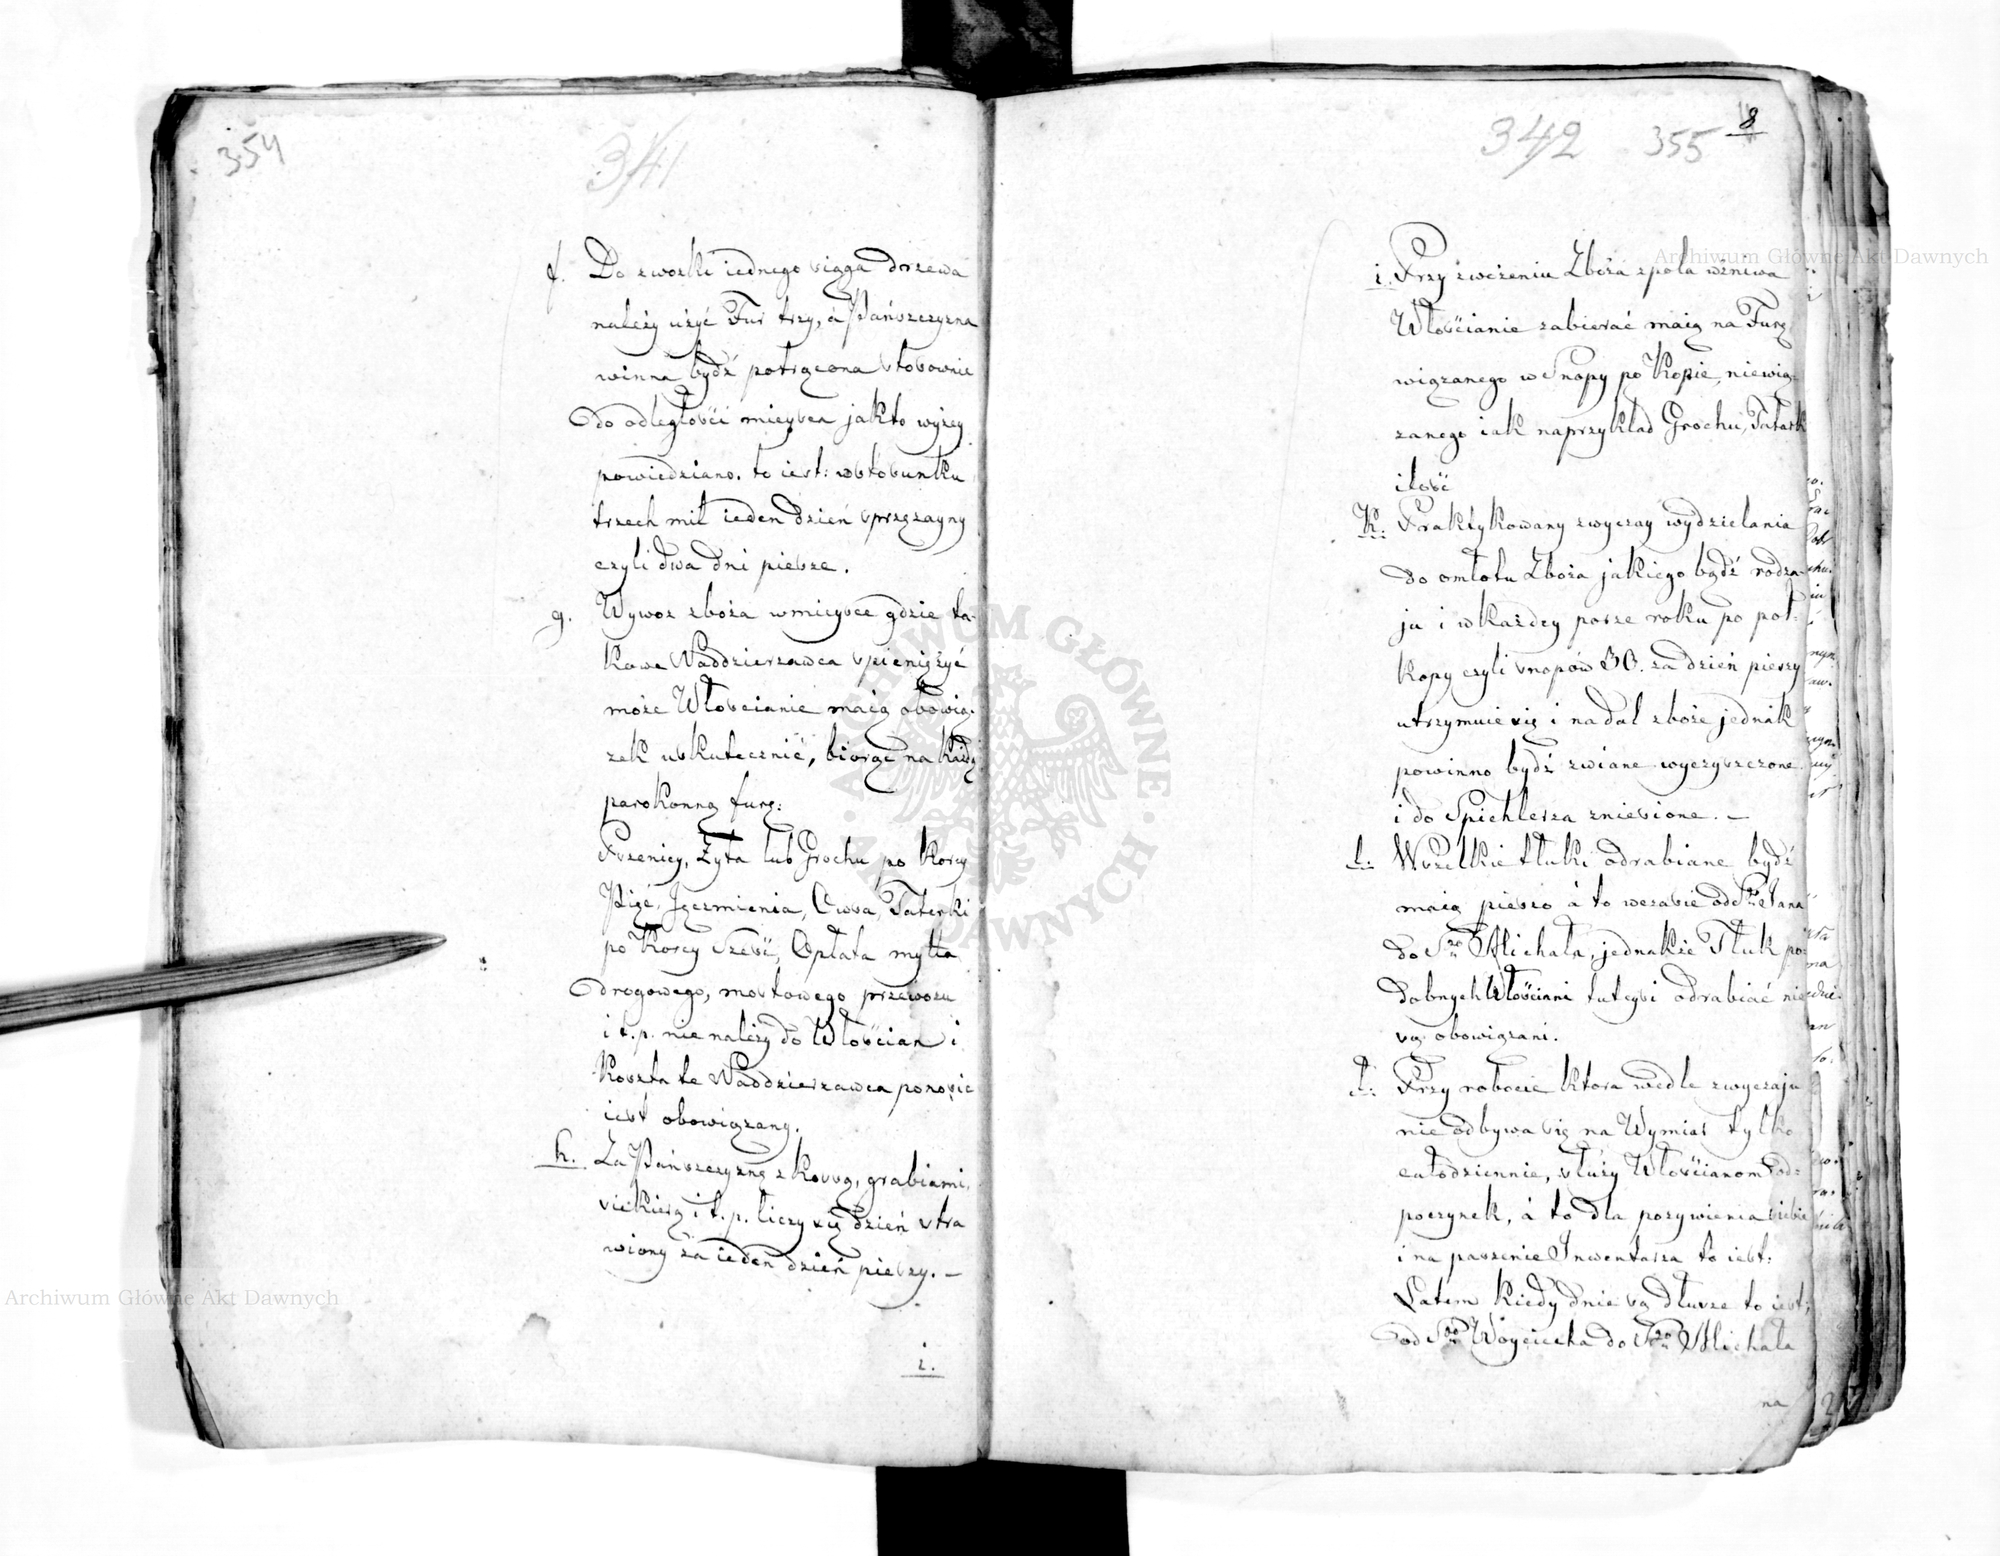 354
341
f. Do zwozki iednego siąga drzewa
należy użyć Fur trzy, á Pańszczyzna
winna bydź potrącona stosownie
do odległości mieysca jak to wyżey
powiedziano. to iest: w stosunku
trzech mil ieden dzień sprzężayny
czyli dwa dni piesze.
g. Wywoz zboża w mieysce gdzie ta-
kowe Naddzierzawca spieniężyć
może Włościanie maią obowią-
zek uskutecznić, biorąc na każdą
parokonną furę:
Pszenicy, Żyta lub Grochu po Korcy
Pięć, Jęczmienia, Owsa, Tatarki
po Korcy Sześć, Opłata myta
drogowego, mostowego przewozu
i t. p. nie należy do Włościan i
Koszta te Naddzierzawca ponosić
iest obowiązany.
h. Za Pańszczyznę z kossą, grabiami,
siekierą i t. p. liczy się dzień stra
wiony za ieden dzień pieszy. –
i.
342 355 8
i. Przy zwożeniu Zboża z pola w żniwa
Włościanie zabierać maią na Furę
wiązanego w Snopy po Kopie, niewią-
zanego iak naprzykład Grochu, Tatark
ilość
K. Praktykowany zwyczay wydzielania
do omłotu Zboża jakiego bądź rodza-
ju i w każdey porze roku po poł-
kopy czyli snopów 30. za dzień pieszy
utrzymuie się i nadal zboże jednak
powinno bydź zwiane wyczyszczone
i do Spichlerza zniesione. –
l. Wszelkie tłuki odrabiane bydź
maią pieszo á to w czasie od Sgo Jana
do Sgo Michała, jednakże Tłuk po-
dobnych Włościanie tuteysi odrabiać nie
są obowiązani.
ł. Przy robocie ktora wedle zwyczaju
nie odbywa się na Wymiar tylko
całodziennie, służy Włościanom od-
poczynek, á to dla pożywienia siebie
i na paszenie Inwentarza to iest:
Latem kiedy dnie są dłusze to iest,
od Sgo Woyciecha do Sgo Michała
na
Archiwum Główne Akt Dawnych
Archiwum Główne Akt Dawnych
ARCHIWUM GŁÓWNE AKT DAWNYCH